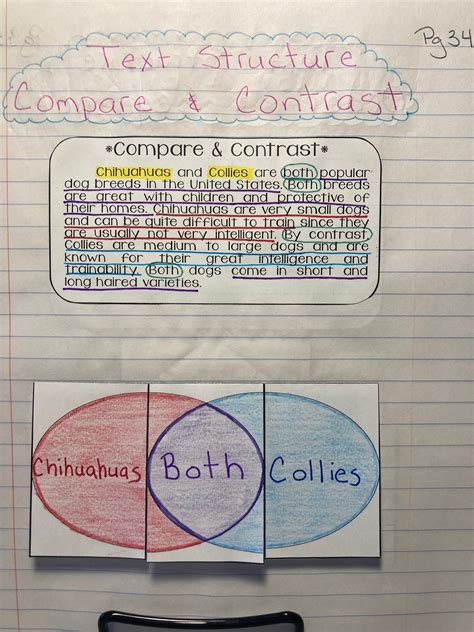 Pg 34
Text Structure
Compare & Contrast
*Compare & Contrast*
Chihuahuas and Collies are both popular
dog breeds in the United States. Both breeds
are great with children and protective of
their homes. Chihuahuas are very small dogs
and can be quite difficult to train since they
are usually not very intelligent. By contrast
Collies are medium to large dogs and are
known for their great intelligence and
trainability. Both dogs come in short and
long haired varieties.
Chihuahuas Both Collies